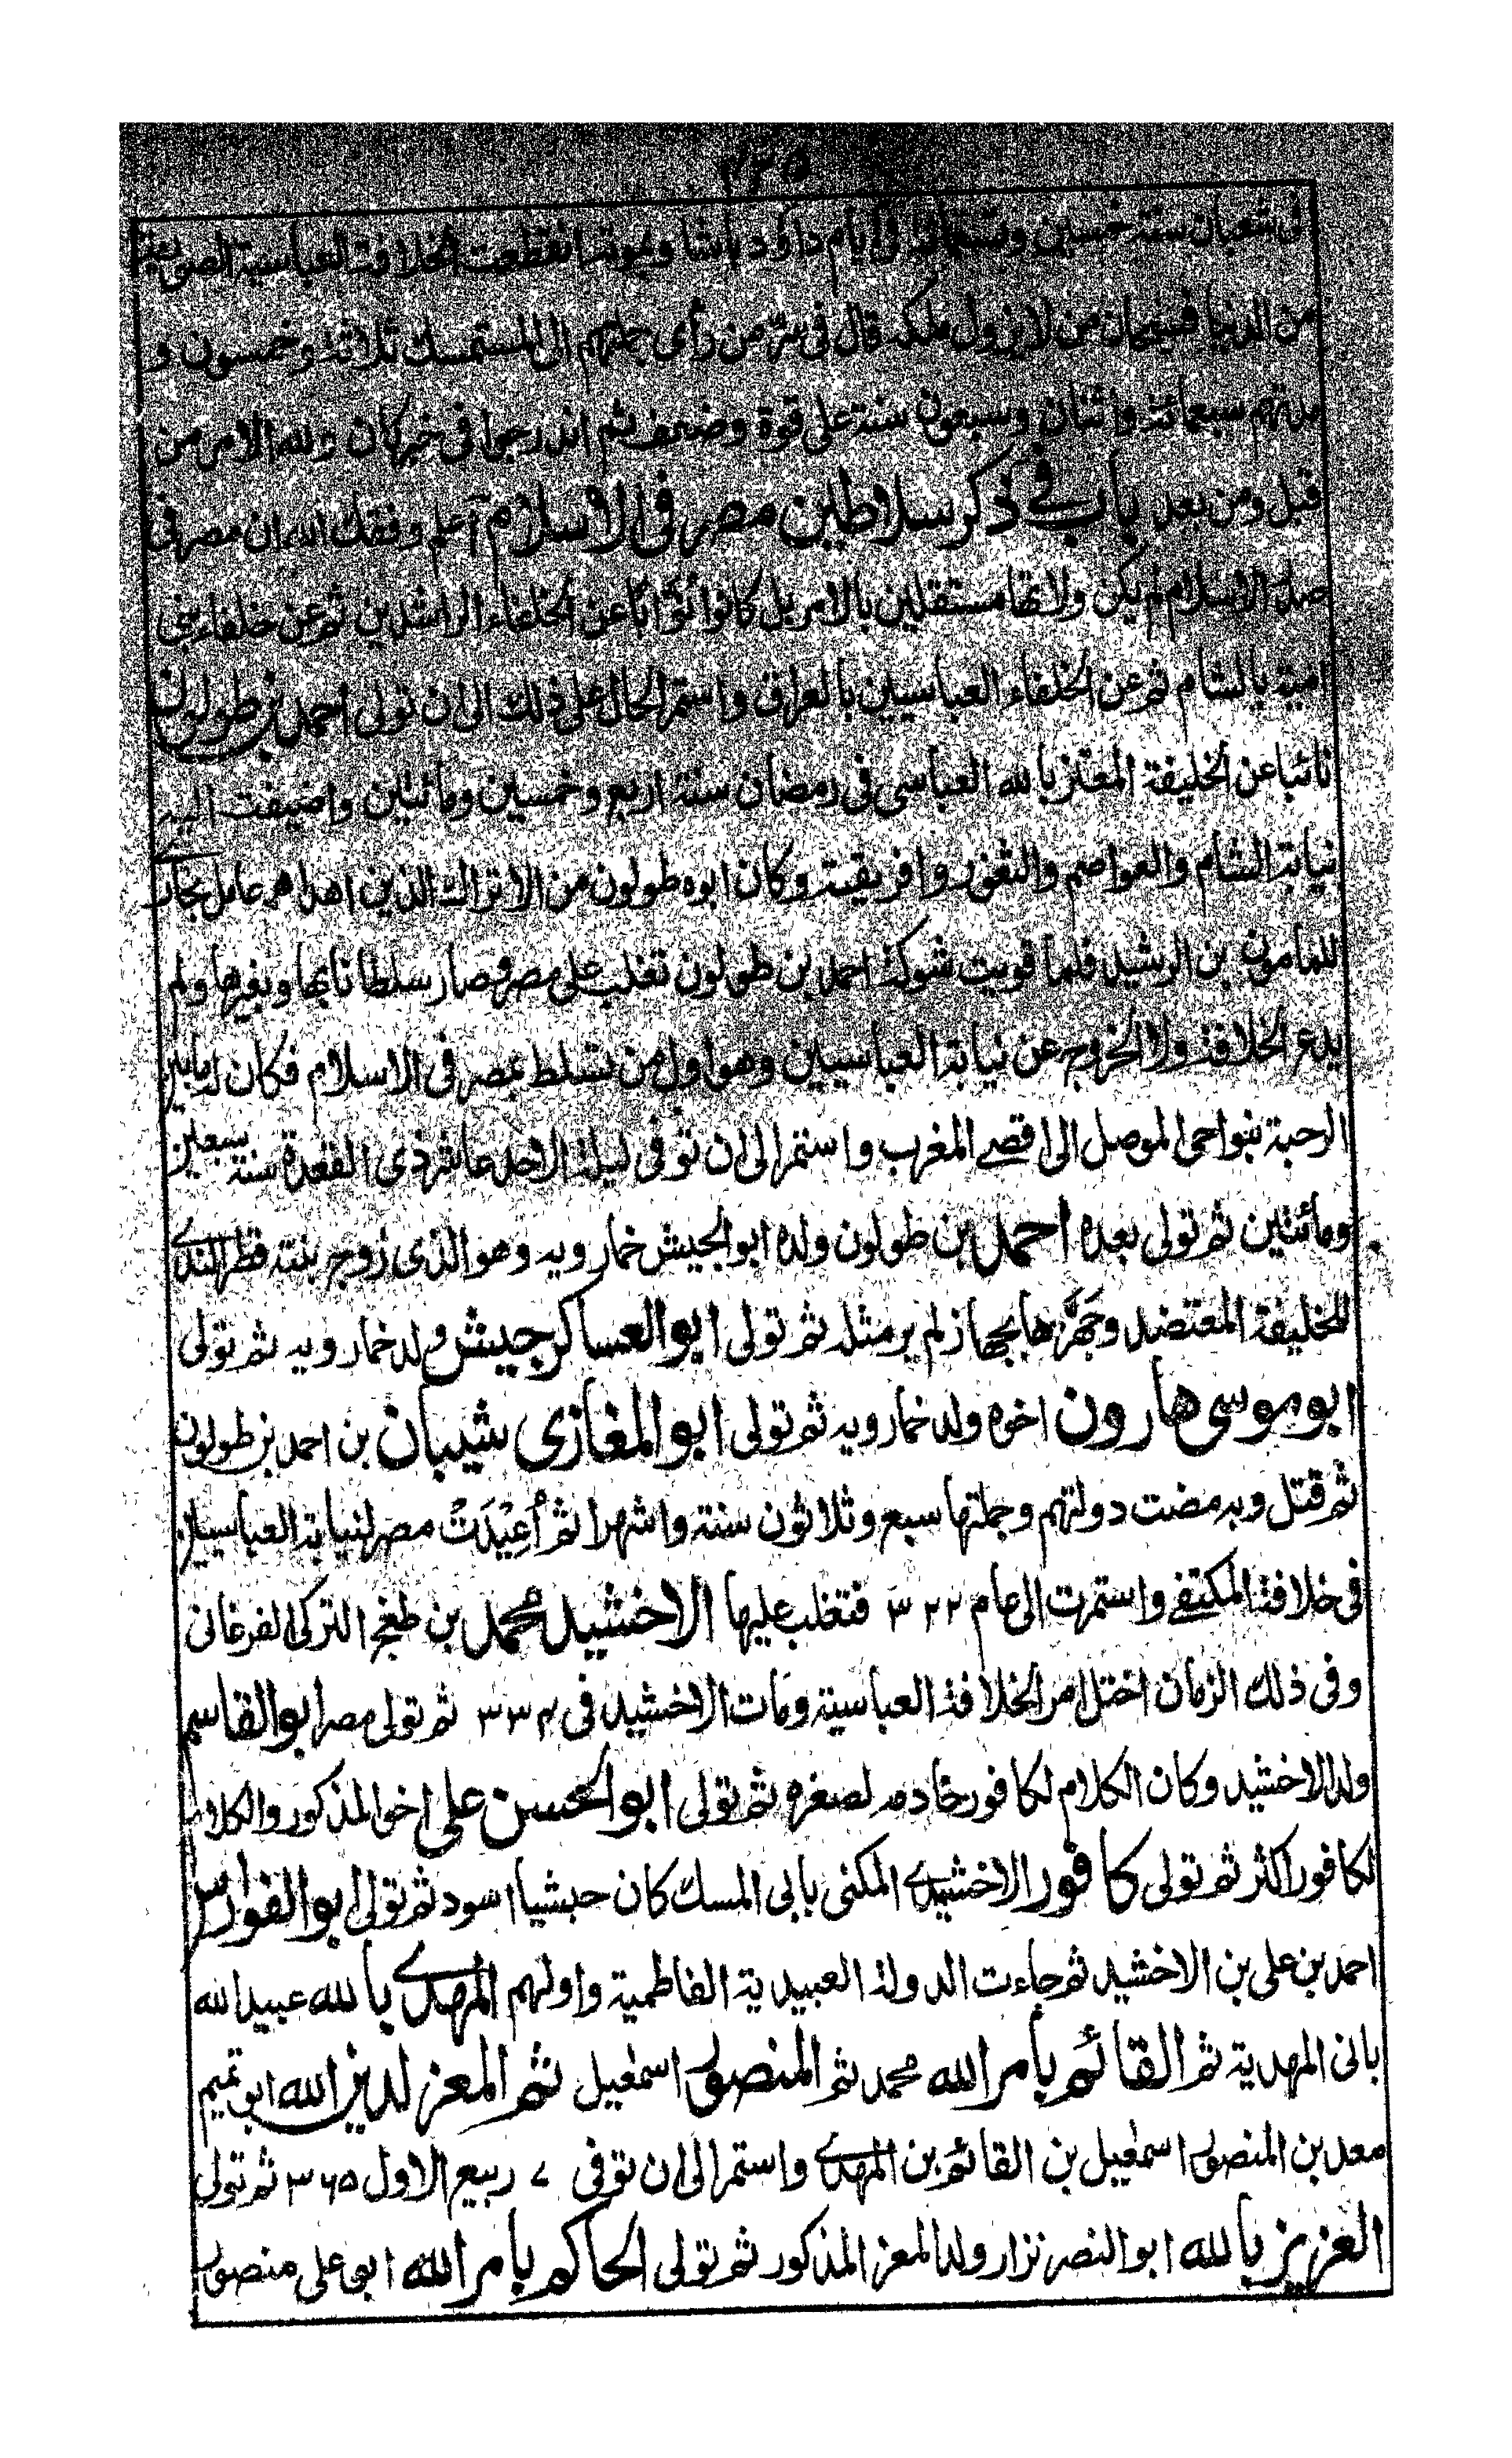 ٤٣٥
فى شعبان سنة خمسين وتسعمائة فى ايام داود باشا وبموته انقطعت الخلافة العباسية الصورية
من الدنيا فسبحان من لا يزول ملكه قال فى من رأى جملتهم الى المستمسك ثلاثة وخمسون و
مدتهم سبعمائة واثنان وسبعون سنة على قوة وضعف ثم اندرجوا فى خبر كان ولله الامر من
قبل ومن بعد باب فے ذكر سلاطين مصر فى الاسلام اعلم وفقك الله ان مصر فى
صدر الاسلام لم يكن ولاتها مستقلين بالامر بل كانوا نُوَّابًا عن الخلفاء الراشدين ثم عن خلفاء بنى
امية بالشام ثم عن الخلفاء العباسيين بالعراق واستمر الحال على ذلك الى ان تولى احمد بن طولون
نائبا عن الخليفة المعتز بالله العباسى فى رمضان سنة اربع وخمسين ومائتين واضيفت اليه
نيابة الشام والعواصم والثغور وافريقية وكان ابوه طولون من الاتراك الذين اهداهم عامل بخارے
للمامون بن الرشيد فلما قويت شوكة احمد بن طولون تغلب على مصر فصار سلطانا بها وبغيرها ولم
يدع الخلافة ولا الخروج عن نيابة العباسيين وهو اول من تسلط بمصر فى الاسلام فكان له ما بين
الرحبة بنواحى الموصل الى اقصے المغرب واستمر الى ان توفى ليلة الاحد عاشر ذى القعدة سنة سبعين
ومائتين ثم تولى بعده احمد بن طولون ولده ابو الجيش خمارويه وهو الذى زوج بنته قطر الندے
للخليفة المعتضد وجَهَّزها بجهاز لم ير مثله ثم تولى ابو العساكر جيش ولد خمارويه ثم تولى
ابو موسى هارون اخوه ولد خمارويه ثم تولى ابو المغازى شيبان بن احمد بن طولون
ثم قتل وبه مضت دولتهم وجملتها سبع وثلاثون سنة واشهرا ثم أُعِيْدَتْ مصر لنيابة العباسيين
فى خلافة المكتفے واستمرت الى عام ٣٢٢ فتغلب عليها الاخشيد محمد بن طغج التركى الفرغانى
وفى ذلك الزمان اختل امر الخلافة العباسية ومات الاخشيد فى ٣٣٤ ثم تولى مصر ابو القاسم
ولد الاخشيد وكان الكلام لكافور خادمه لصغره ثم تولى ابو الحسن على اخو المذكور والكلام
لكافور اكثر ثم تولى كافور الاخشيدے المكنى بابى المسك كان حبشيا اسود ثم تولى ابو الفوارس
احمد بن على بن الاخشيد ثم جاءت الدولة العبيدية الفاطمية واولهم المهدے بالله عبيد الله
بانى المهدية ثم القائم بامر الله محمد ثم المنصور اسمعيل ثم المعز لدين الله ابو تميم
معد بن المنصور اسمعيل بن القائم بن المهدے واستمر الى ان توفى ٧ ربيع الاول ٣٦٥ ثم تولى
العزيز بالله ابو النصر نزار ولد المعز المذكور ثم تولى الحاكم بامر الله ابو على منصور